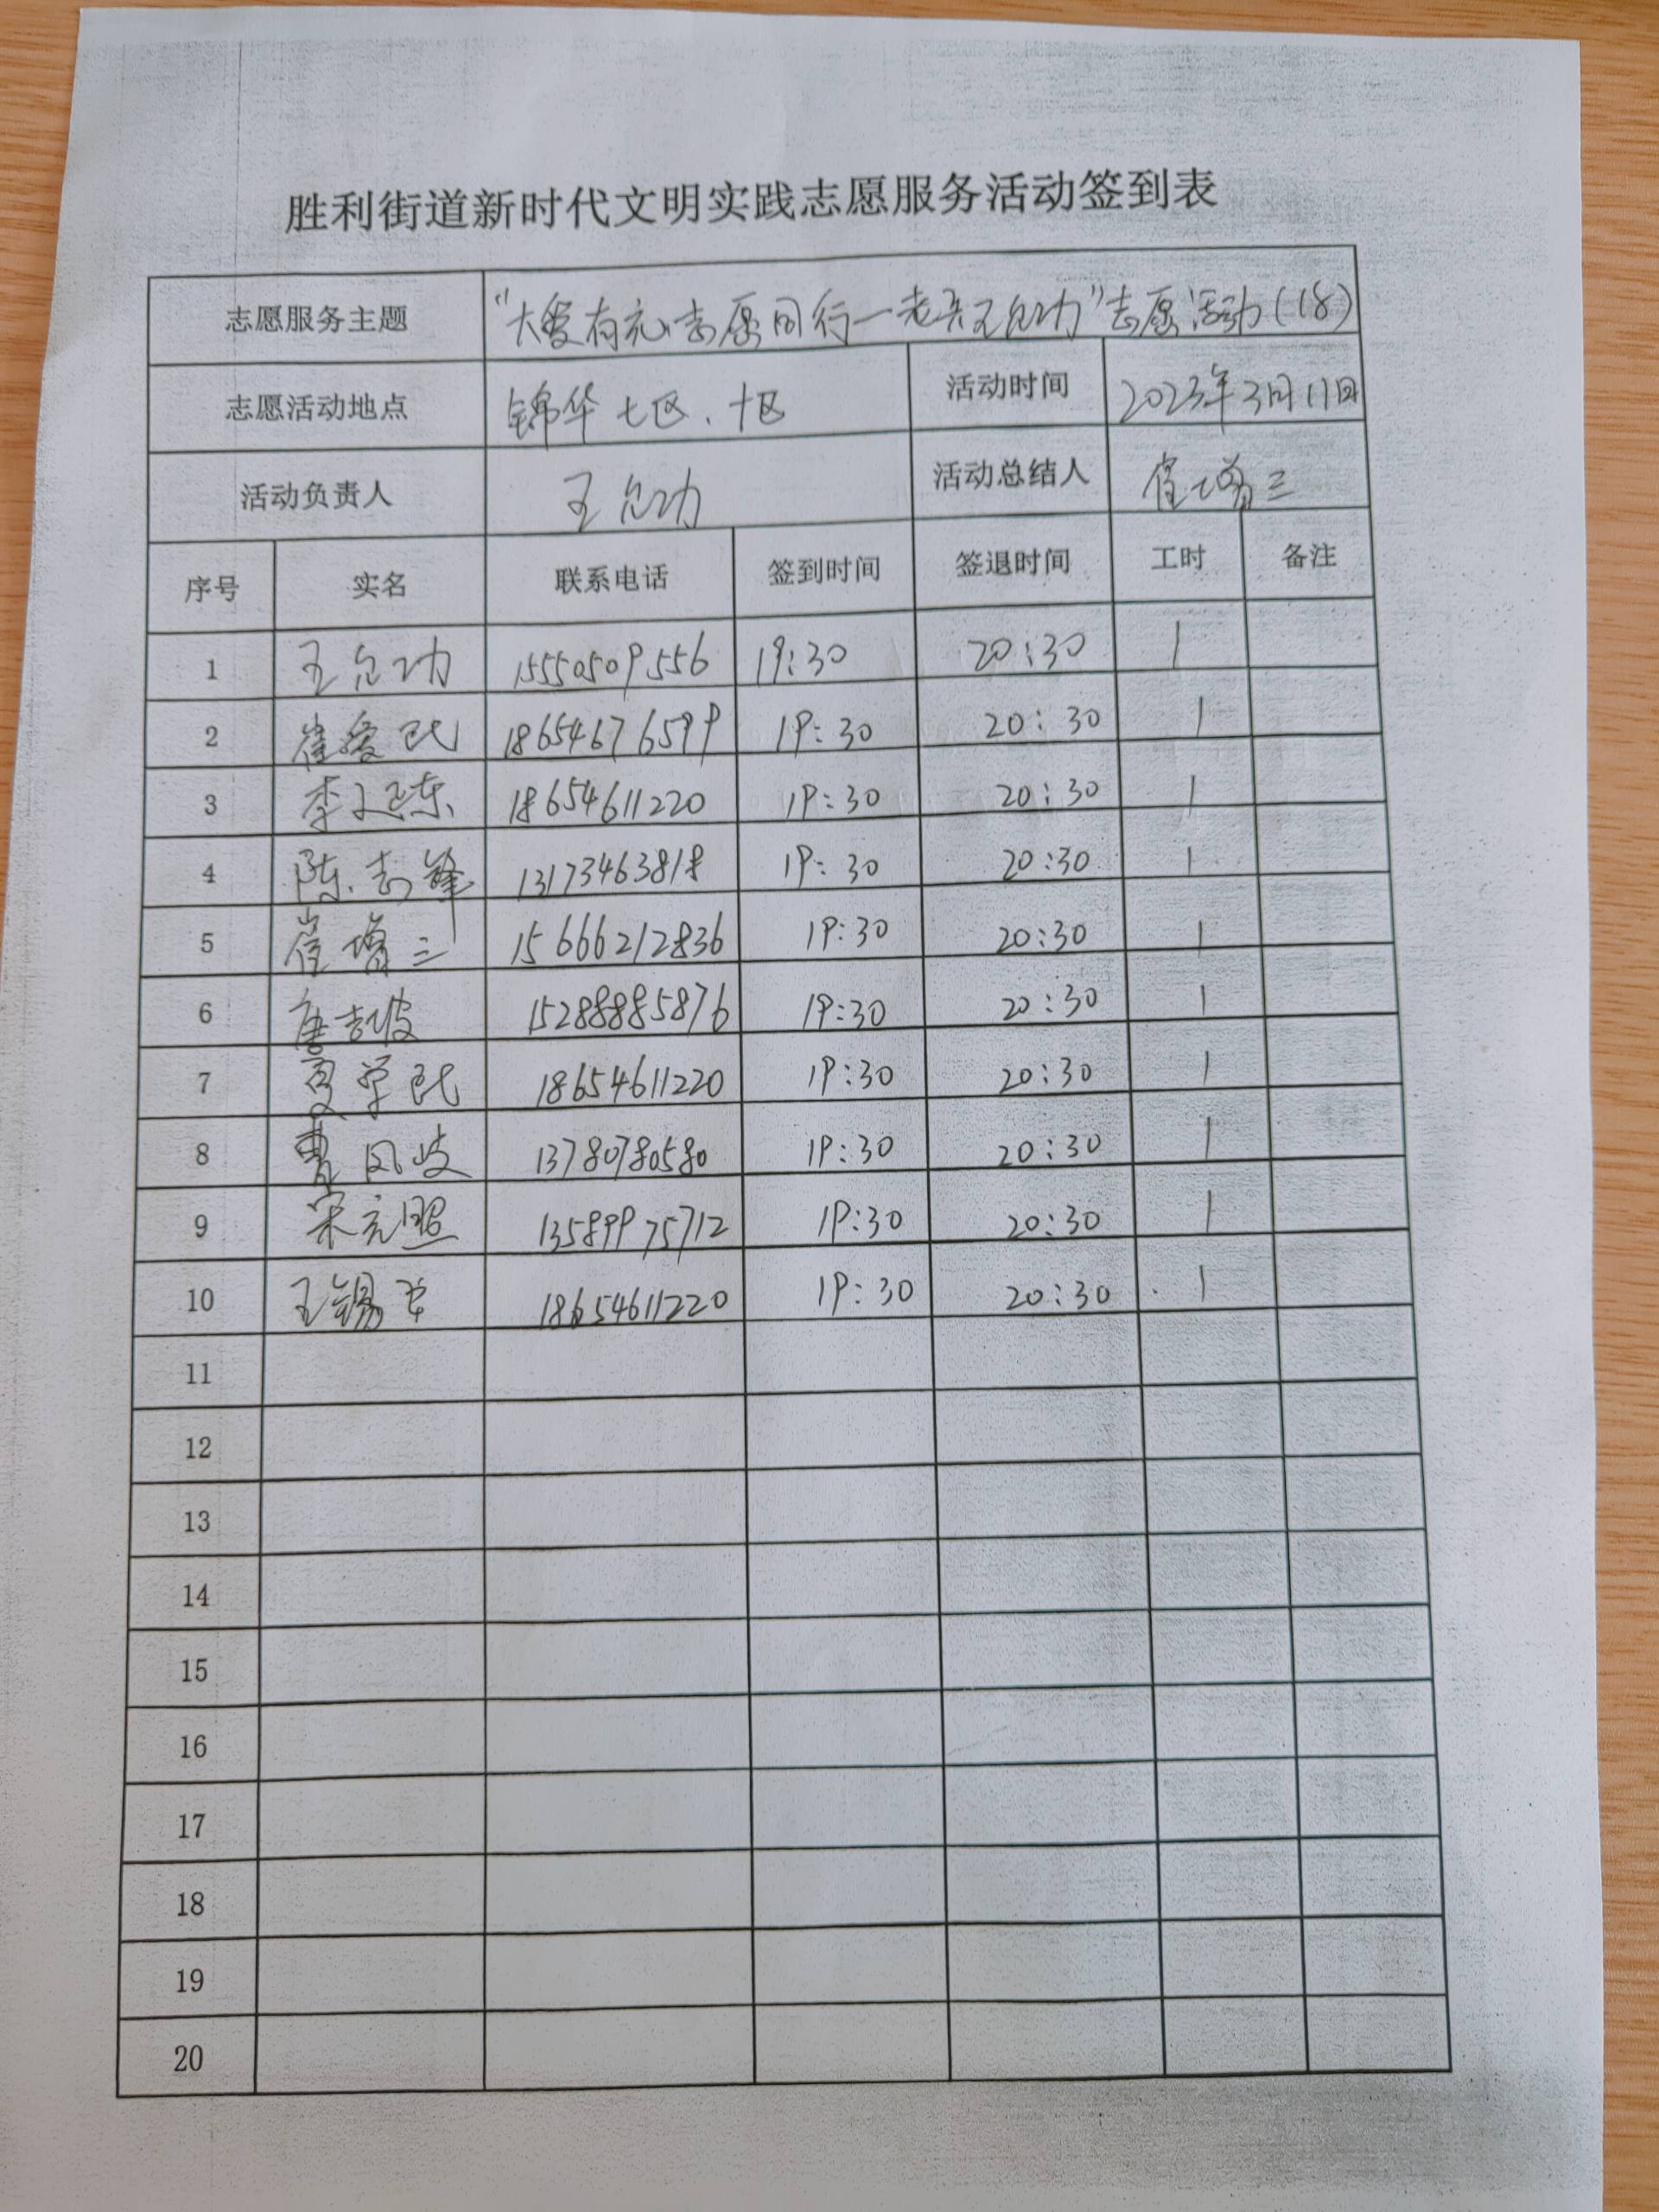 胜利街道新时代文明实践志愿服务活动签到表
志愿服务主题 "大爱有元，志愿同行一老兵王允功"志愿活动(18)
志愿活动地点 锦华七区、十区 活动时间 2023年3月11日
活动负责人 王允功 活动总结人 崔增三
序号 实名 联系电话 签到时间 签退时间 工时 备注
1 王允功 15550509556 19:30 20:30 1
2 崔爱民 18654676599 19:30 20:30 1
3 李廷东 18654611220 19:30 20:30 1
4 陈志锋 13173463818 19:30 20:30 1
5 崔增三 15666212836 19:30 20:30 1
6 唐志坡 15288885876 19:30 20:30 1
7 夏学民 18654611220 19:30 20:30 1
8 曹风岐 13780780580 19:30 20:30 1
9 宋元照 13589975712 19:30 20:30 1
10 王锡 18654611220 19:30 20:30 1
11
12
13
14
15
16
17
18
19
20